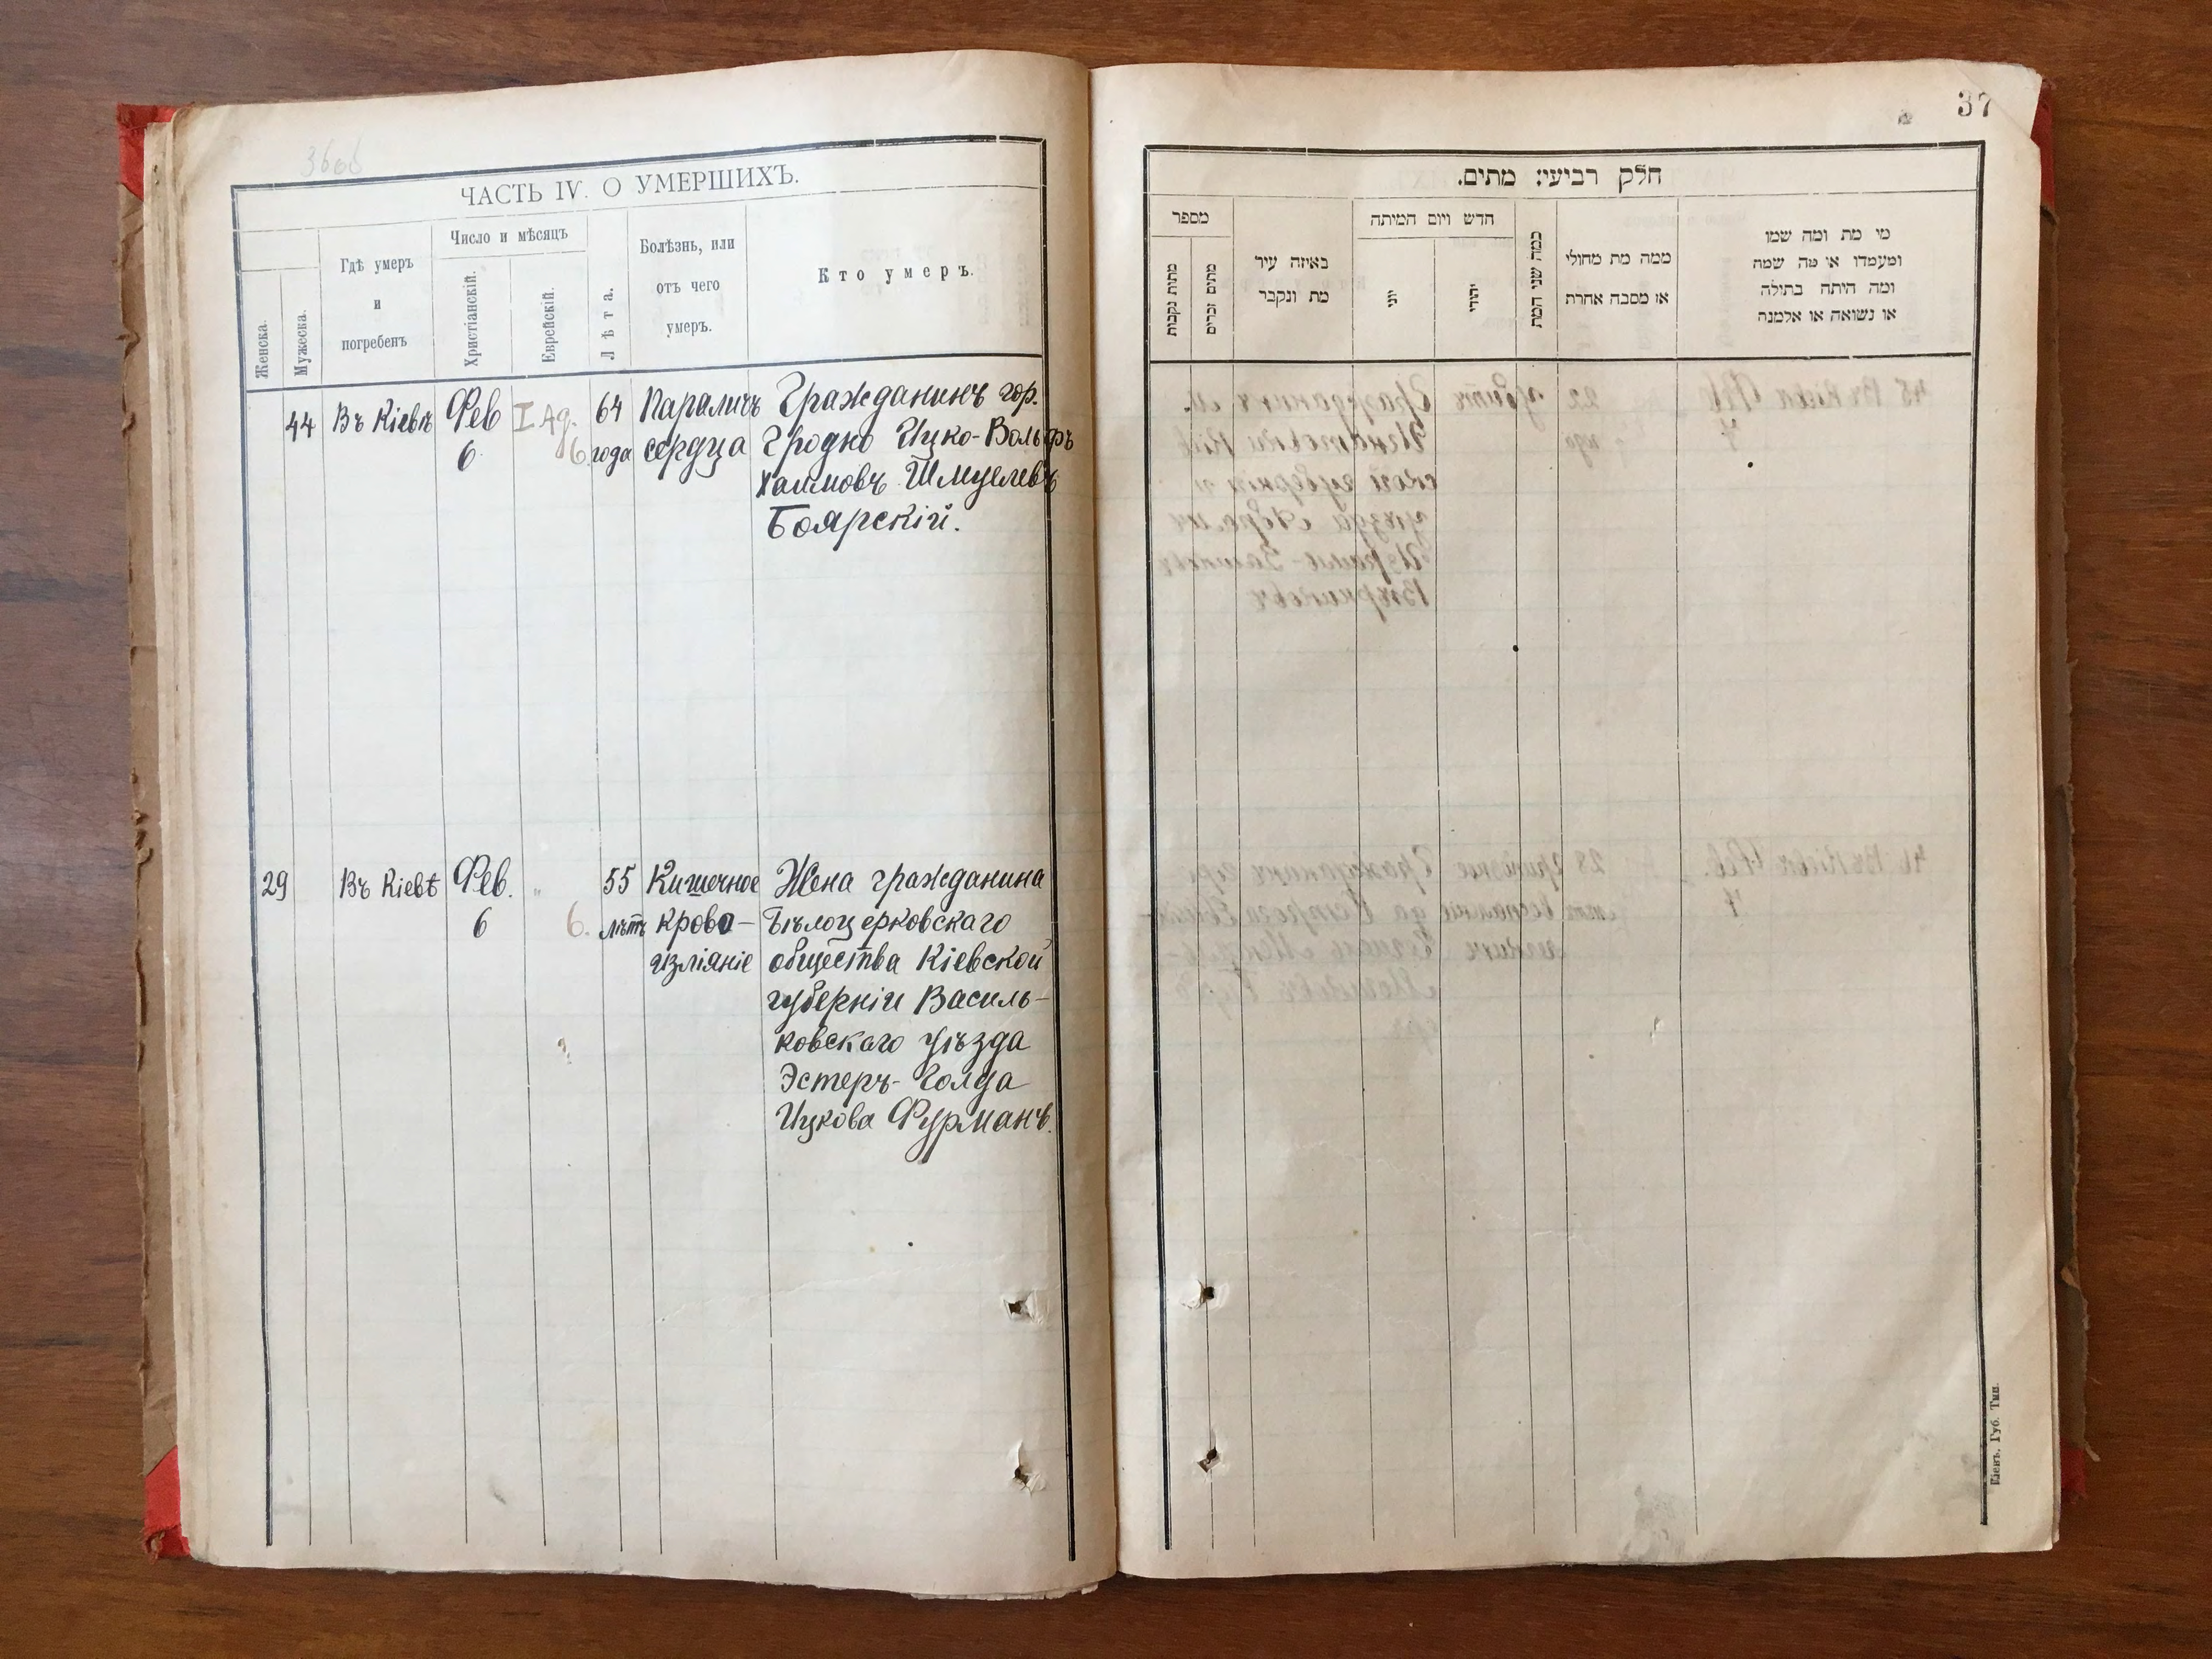 36об
ЧАСТЬ IV. О УМЕРШИХЪ.
Женска.
Мужеска.
Гдѣ умеръ
и
погребенъ
Число и мѣсяцъ
Христіанскій.
Еврейскій.
Лѣта.
Болѣзнь, или
отъ чего
умеръ.
Кто умеръ.
44
Въ Кіевѣ
Фев
6
I Ад.
6.
64
года
Параличъ
сердца
Гражданинъ гор.
Гродно Ицко-Вольфъ
Хаимовъ Шмулевъ
Боярскій.
29
Въ Кіевѣ
Фев.
6
"
6.
55
лѣтъ
Кишечное
крово-
изліяніе
Жена гражданина
Бѣлоцерковскаго
общества Кіевской
губерніи Василь-
ковскаго уѣзда
Эстеръ-Голда
Ицкова Фурманъ.
37
חלק רביעי: מתים.
מספר
מתות נקבות
מתים זכרים
באיזה עיר
מת ונקבר
חדש ויום המיתה
יוני
יהודי
כמה שני המת
ממה מת מחולי
או מסבה אחרת
מי מת ומה שמו
ומעמדו או מה שמה
ומה היתה בתילה
או נשואה או אלמנה
Кіевъ. Губ. Тип.